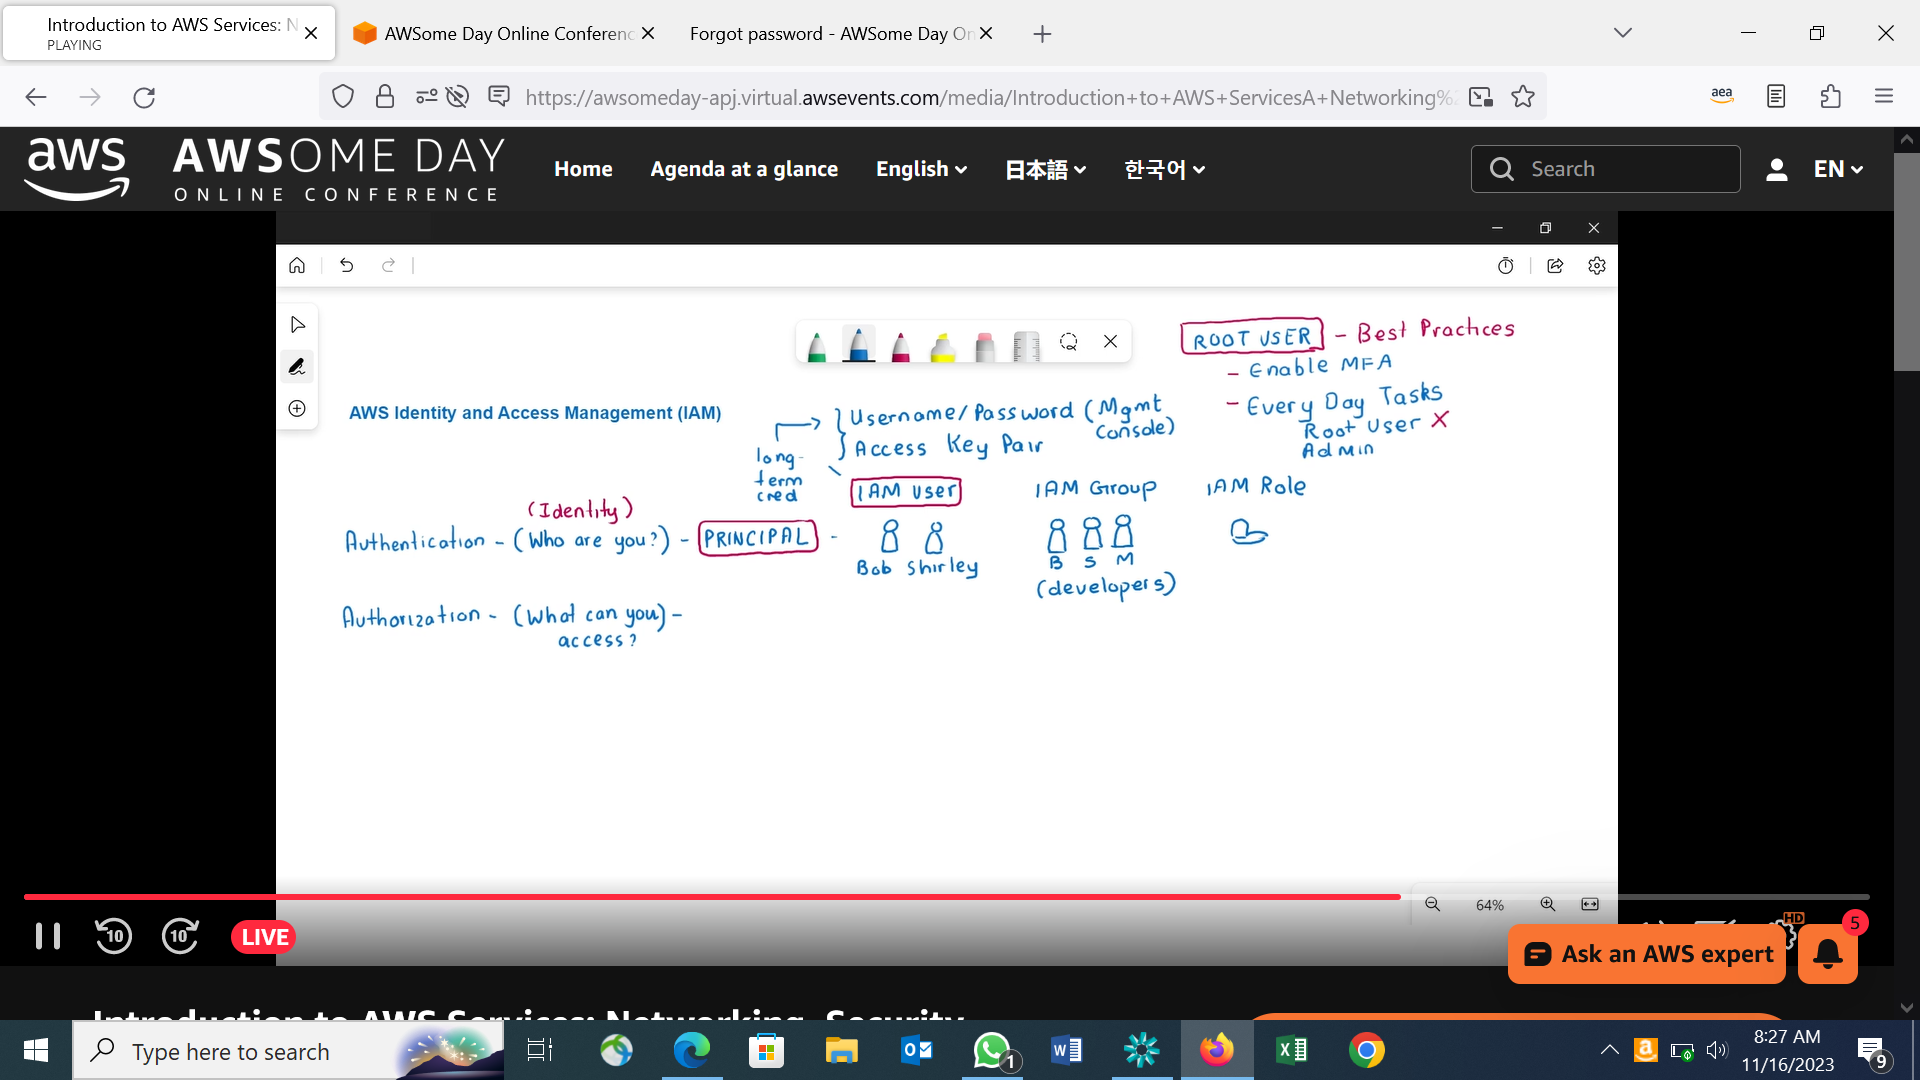 Introduction to AWS Services: N
PLAYING
AWSome Day Online Conferenc
Forgot password - AWSome Day On
https://awsomeday-apj.virtual.awsevents.com/media/Introduction+to+AWS+ServicesA+Networking%2
aea
aws
AWSOME DAY
ONLINE CONFERENCE
Home
Agenda at a glance
English
日本語
한국어
Search
EN
ROOT USER - Best Practices
- Enable MFA
- Every Day Tasks
Root User X
Admin
AWS Identity and Access Management (IAM)
Username/Password (Mgmt
Console)
Access Key Pair
long-
term
cred
IAM User
IAM Group
IAM Role
(Identity)
Authentication - (Who are you?) - PRINCIPAL -
Bob Shirley
B S M
(developers)
Authorization - (What can you) -
access?
64%
10
10
LIVE
HD
5
Ask an AWS expert
Introduction to AWS Services: Networking, Security
Type here to search
1
8:27 AM
11/16/2023
9